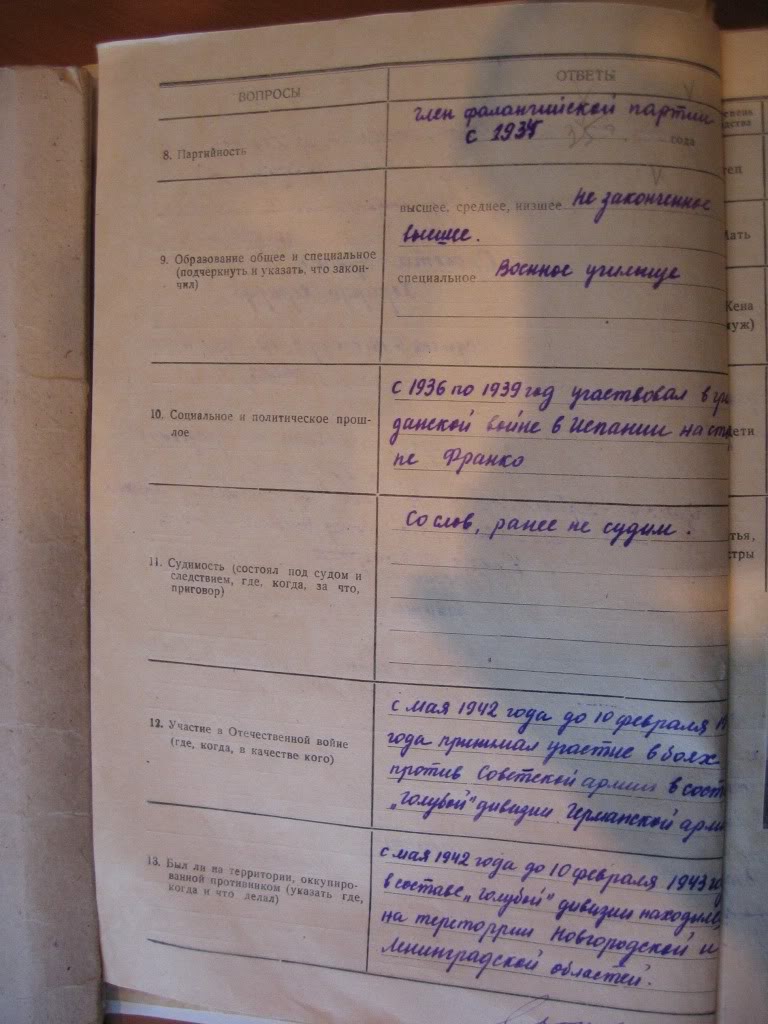 ВОПРОСЫ
ОТВЕТЫ
8. Партийность
член фалангийской партии
с 1934
года
9. Образование общее и специальное
(подчеркнуть и указать, что закон-
чил)
высшее, среднее, низшее Не законченное
высшее.
специальное Военное училище
10. Социальное и политическое прош-
лое
С 1936 по 1939 год участвовал в гра
данской войне в Испании на сто
не Франко
11. Судимость (состоял под судом и
следствием, где, когда, за что,
приговор)
Со слов, ранее не судим.
12. Участие в Отечественной войне
(где, когда, в качестве кого)
с мая 1942 года до 10 февраля 19
года принимал участие в боях
против Советской армии в сост
„голубой" дивизии Германской арми
13. Был ли на территории, оккупиро-
ванной противником (указать где,
когда и что делал)
с мая 1942 года до 10 февраля 1943 го
в составе „голубой" дивизии находился
на тереторрии Новгородской и
Ленинградской областей.
епень
дства
тец
Мать
Жена
муж)
дети
тья,
тры